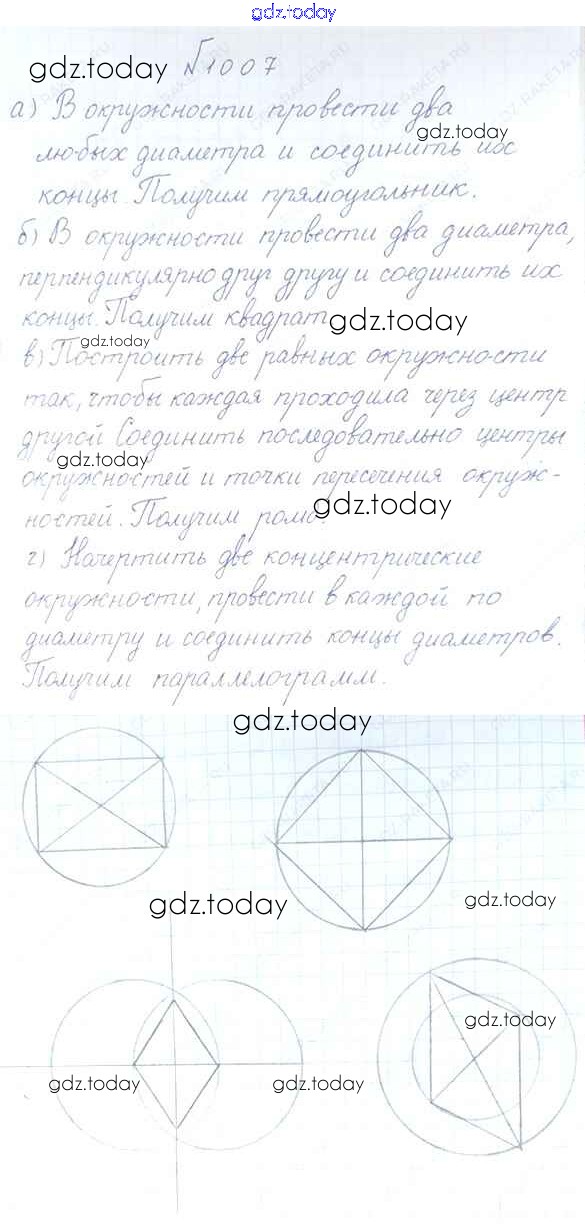 gdz.today
gdz.today №1007
а) В окружности провести два
gdz.today
любых диаметра и соединить их
концы. Получим прямоугольник.
б) В окружности провести два диаметра,
перпендикулярно друг другу и соединить их
концы. Получим квадрат
gdz.today
gdz.today
в) Построить две равных окружности
так, чтобы каждая проходила через центр
другой Соединить последовательно центры
gdz.today
окружностей и точки пересечения окруж-
gdz.today
ностей. Получим ромб.
г) Начертить две концентрические
окружности, провести в каждой по
диаметру и соединить концы диаметров.
Получим параллелограмм.
gdz.today
gdz.today
gdz.today
gdz.today
gdz.today
gdz.today